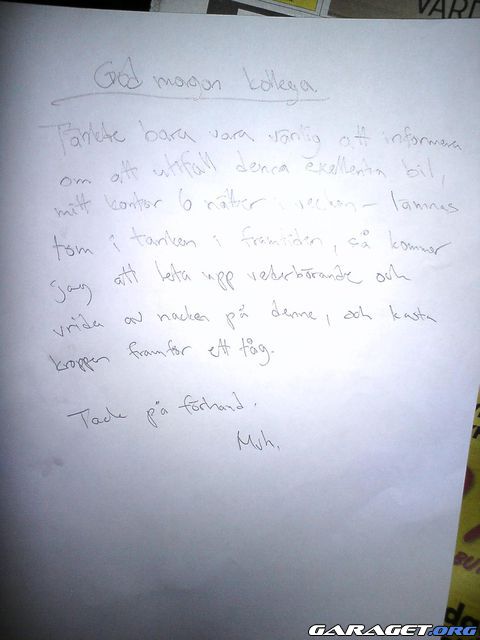 VARD
God magon kollega
Tänkte bara vara vänlig att informera
om att utifall denna exellenta bil,
mitt kontor 6 nätter i veckan - lämnas
tom i tanken i framtiden, så kommer
jag att leta upp vederbörande och
vrida av nacken på denne, och kasta
kroppen framför ett tåg.
Tack på förhand.
Mvh.
GARAGET.ORG